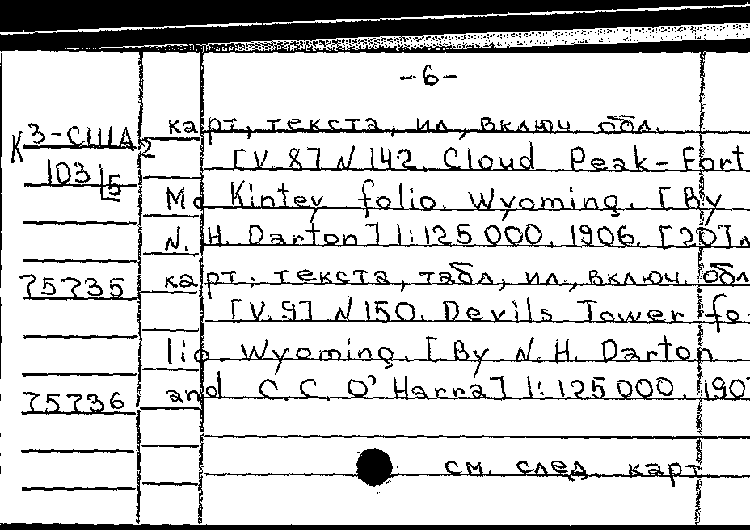 -6-
К З-США 2
103 5
карт, текста, ил., включ. обл.
[V. 8] N 142. Cloud Peak-Fort
Mc Kintey folio. Wyoming. [By
N. H. Darton] 1:125 000. 1906. [20] л
75735 карт, текста, табл., ил., включ. обл
[V. 9] N 150. Devils Tower fo-
lio. Wyoming. [By N. H. Darton
75736 and C. C. O'Harra] 1:125000. 190
см. след. карт